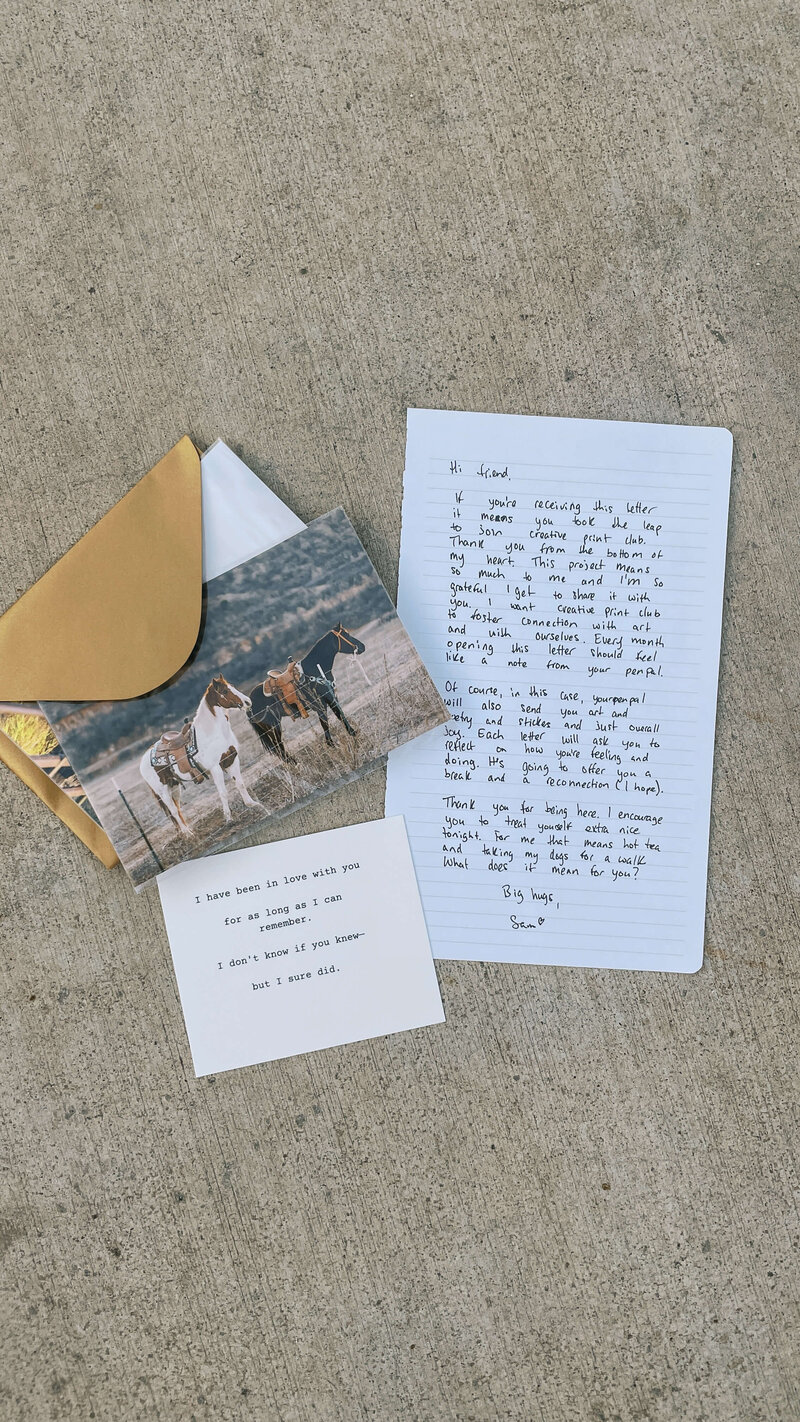 Hi friend,
If you're receiving this letter
it means you took the leap
to join creative print club.
Thank you from the bottom of
my heart. This project means
so much to me and I'm so
grateful I get to share it with
you. I want creative print club
to foster connection with art
and with ourselves. Every month
opening this letter should feel
like a note from your penpal.
Of course, in this case, your penpal
will also send you art and
poetry and stickes and just overall
joy. Each letter will ask you to
reflect on how you're feeling and
doing. It's going to offer you a
break and a reconnection (I hope).
Thank you for being here. I encourage
you to treat yourself extra nice
tonight. For me that means hot tea
and taking my dogs for a walk
What does it mean for you?
Big hugs,
Sam
I have been in love with you
for as long as I can
remember.
I don't know if you knew—
but I sure did.